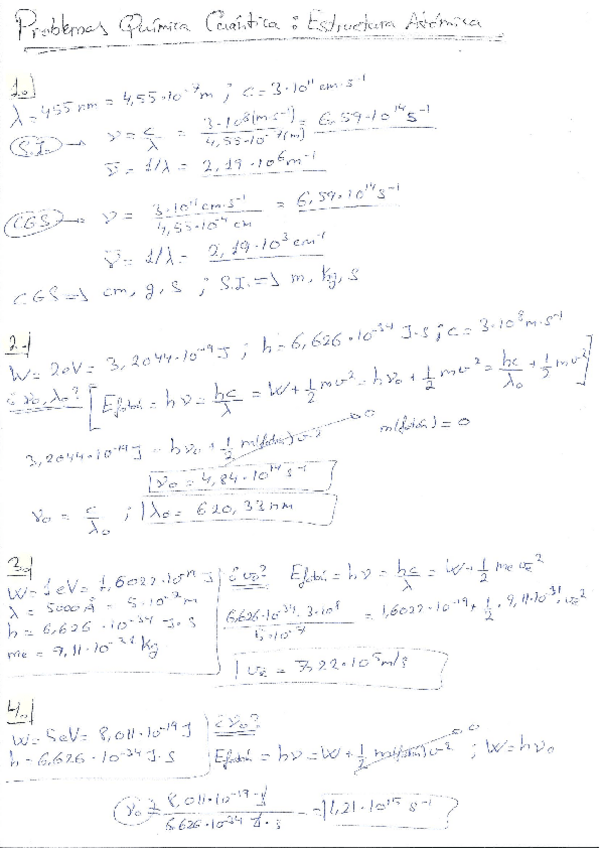 Problemas Química Cuántica: Estructura Atómica
1.)
λ = 455 nm = 4,55·10⁻⁷ m ; c = 3·10¹¹ cm·s⁻¹
S.I. → ν = c/λ = 3·10⁸(m·s⁻¹)/4,55·10⁻⁷(m) = 6,59·10¹⁴ s⁻¹
ν̄ = 1/λ = 2,19·10⁶ m⁻¹
CGS → ν = 3·10¹¹ cm·s⁻¹/4,55·10⁻⁴ cm = 6,59·10¹⁴ s⁻¹
ν̄ = 1/λ = 2,19·10³ cm⁻¹
CGS => cm, g, s ; S.I. => m, Kg, s
2.)
W = 2eV = 3,2044·10⁻¹⁹ J ; h = 6,626·10⁻³⁴ J·s ; c = 3·10⁸ m·s⁻¹
¿ν₀, λ₀? [Efotón = hν = hc/λ = W + 1/2 mv² = hν₀ + 1/2 mv² = hc/λ₀ + 1/2 mv²]
3,2044·10⁻¹⁹ J = hν₀ + 1/2 m(fotón) v² → 0 m(fotón) = 0
ν₀ = 4,84·10¹⁴ s⁻¹
ν₀ = c/λ₀ ; λ₀ = 620,33 nm
3.)
W = 1eV = 1,6022·10⁻¹⁹ J ¿ve? Efotón = hν = hc/λ = W + 1/2 me ve²
λ = 5000 Å = 5·10⁻⁷ m
h = 6,626·10⁻³⁴ J·s 6,626·10⁻³⁴·3·10⁸/5·10⁻⁷ = 1,6022·10⁻¹⁹ + 1/2·9,11·10⁻³¹·ve²
me = 9,11·10⁻³¹ Kg
ve = 7,22·10⁵ m/s
4.)
W = 5eV = 8,011·10⁻¹⁹ J ¿ν₀?
h = 6,626·10⁻³⁴ J·s Efotón = hν = W + 1/2 m(fotón) v² → 0 ; W = hν₀
ν₀ = 8,011·10⁻¹⁹ J/6,626·10⁻³⁴ J·s = 1,21·10¹⁵ s⁻¹